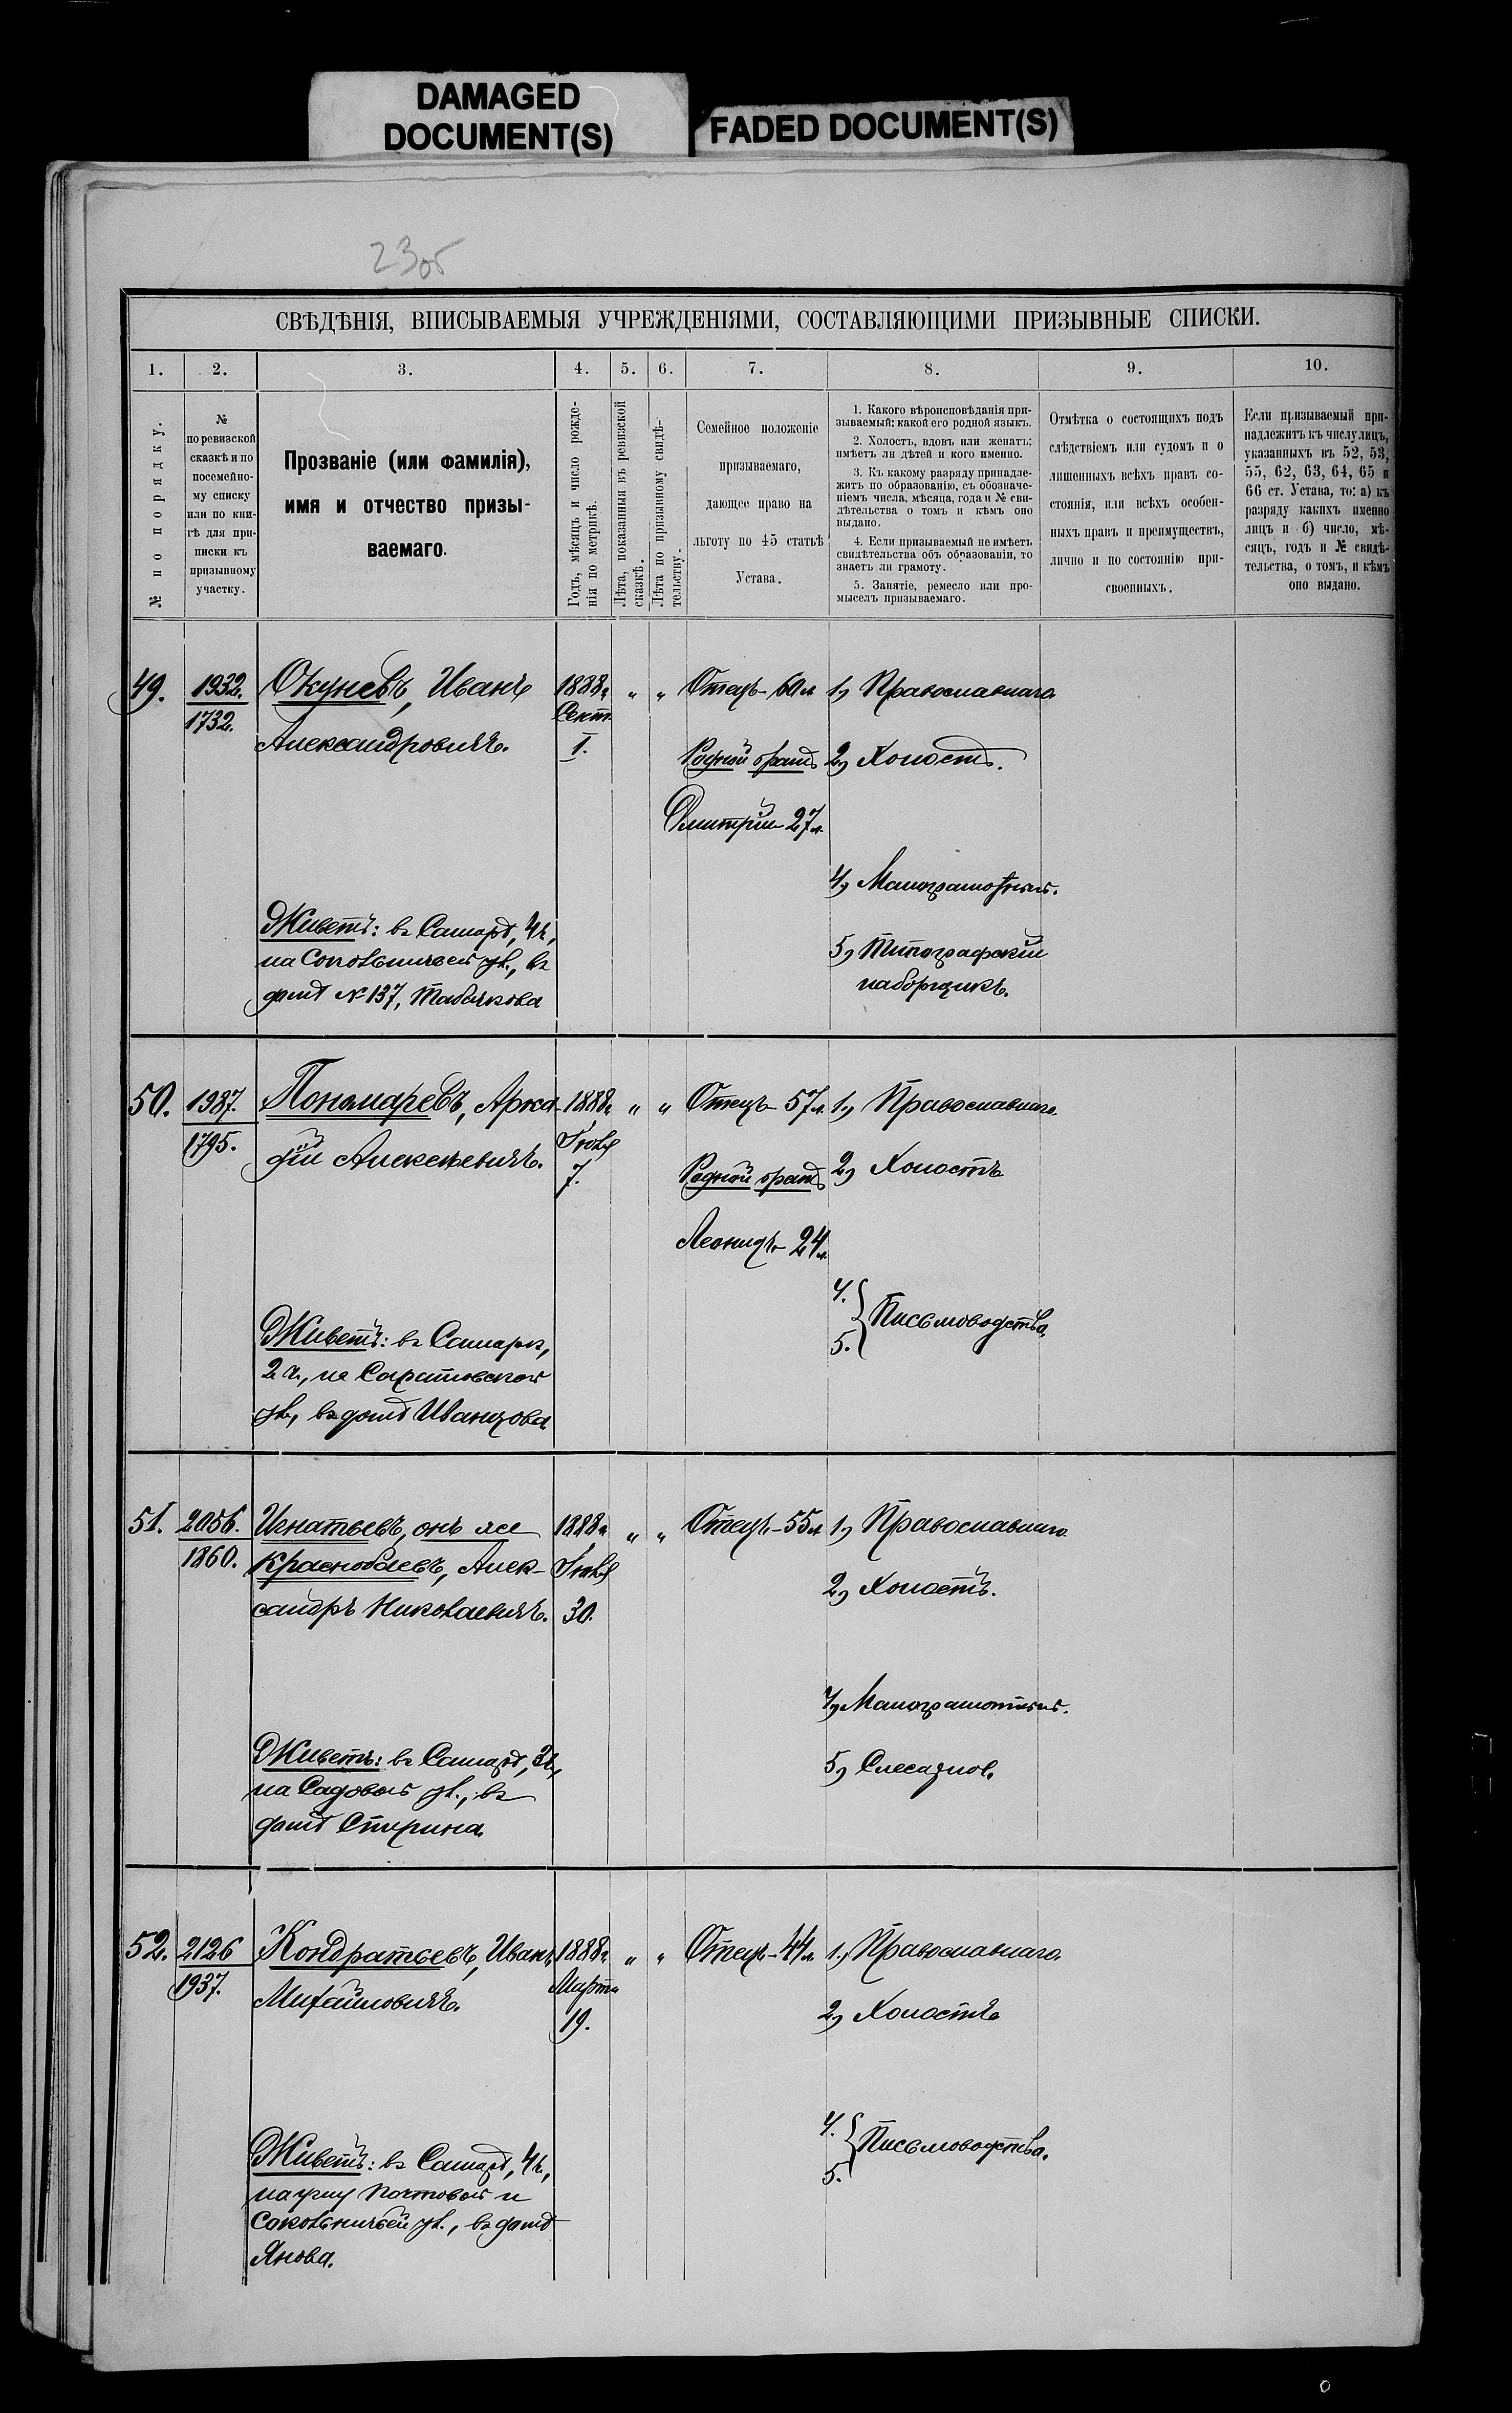 DAMAGED
DOCUMENT(S)
FADED DOCUMENT(S)
23об
СВѢДѢНІЯ, ВПИСЫВАЕМЫЯ УЧРЕЖДЕНІЯМИ, СОСТАВЛЯЮЩИМИ ПРИЗЫВНЫЕ СПИСКИ.
1. 2. 3. 4. 5. 6. 7. 8. 9. 10.
№ по порядку.
№
по ревизской
сказкѣ и по
посемейно-
му списку
или по кни-
гѣ для при-
писки къ
призывному
участку.
Прозваніе (или фамилія),
имя и отчество призы-
ваемаго.
Годъ, мѣсяцъ и число рожде-
нія по метрикѣ.
Лѣта, показанныя въ ревизской
сказкѣ.
Лѣта по призывному свидѣ-
тельству.
Семейное положеніе
призываемаго,
дающее право на
льготу по 45 статьѣ
Устава.
1. Какого вѣроисповѣданія при-
зываемый: какой его родной языкъ.
2. Холостъ, вдовъ или женатъ;
имѣетъ ли дѣтей и кого именно.
3. Къ какому разряду принадле-
житъ по образованію, съ обозначе-
ніемъ числа, мѣсяца, года и № сви-
дѣтельства о томъ и кѣмъ оно
выдано.
4. Если призываемый не имѣетъ
свидѣтельства объ образованіи, то
знаетъ ли грамоту.
5. Занятіе, ремесло или про-
мыселъ призываемаго.
Отмѣтка о состоящихъ подъ
слѣдствіемъ или судомъ и о
лишенныхъ всѣхъ правъ со-
стоянія, или всѣхъ особен-
ныхъ правъ и преимуществъ,
лично и по состоянію при-
своенныхъ.
Если призываемый при-
надлежитъ къ числу лицъ,
указанныхъ въ 52, 53,
55, 62, 63, 64, 65 и
66 ст. Устава, то: а) къ
разряду какихъ именно
лицъ и б) число, мѣ-
сяцъ, годъ и № свидѣ-
тельства, о томъ, и кѣмъ
оно выдано.
49. 1932. Окуневъ, Иванъ 1888г. " " Отецъ-60л. 1, Православнаго.
1732. Александровичъ. Сент. 1.
Родной братъ 2, Холостъ.
Дмитрій 27л.
4, Малограмотный.
Живетъ: въ Самарѣ, 4ч.,
на Сокольничьей ул., въ
домѣ №137, Табачкова
5, Типографскій
наборщикъ.
50. 1987. Пономаревъ, Арка- 1888г. " " Отецъ-57л. 1, Православнаго.
1795. дій Алексѣевичъ. Іюля 7.
Родной братъ 2, Холостъ
Леонидъ-24л.
4. 5. } Письмоводства.
Живетъ: въ Самарѣ,
2 ч., на Саратовской
ул., въ домѣ Иванцова
51. 2056. Игнатьевъ, онъ же 1888г. " " Отецъ-55л. 1, Православнаго
1860. Краснобаевъ, Алек- Іюля
сандръ Николаевичъ. 30.
2, Холостъ.
4, Малограмотный.
Живетъ: въ Самарѣ, 3ч.,
на Садовой ул., въ
домѣ Стирина.
5, Слесарное.
52. 2126 Кондратьевъ, Иванъ 1888г. " " Отецъ-44л. 1, Православнаго.
1937. Михайловичъ. Марта
19.
2, Холостъ
4. 5. { Письмоводства.
Живетъ: въ Самарѣ, 4ч.,
на углу Почтовой и
Сокольничьей ул., въ домѣ
Янова.